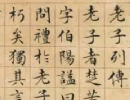 老子列傳
老子者楚苦
字伯陽諡曰
問禮於老子
朽矣獨其言